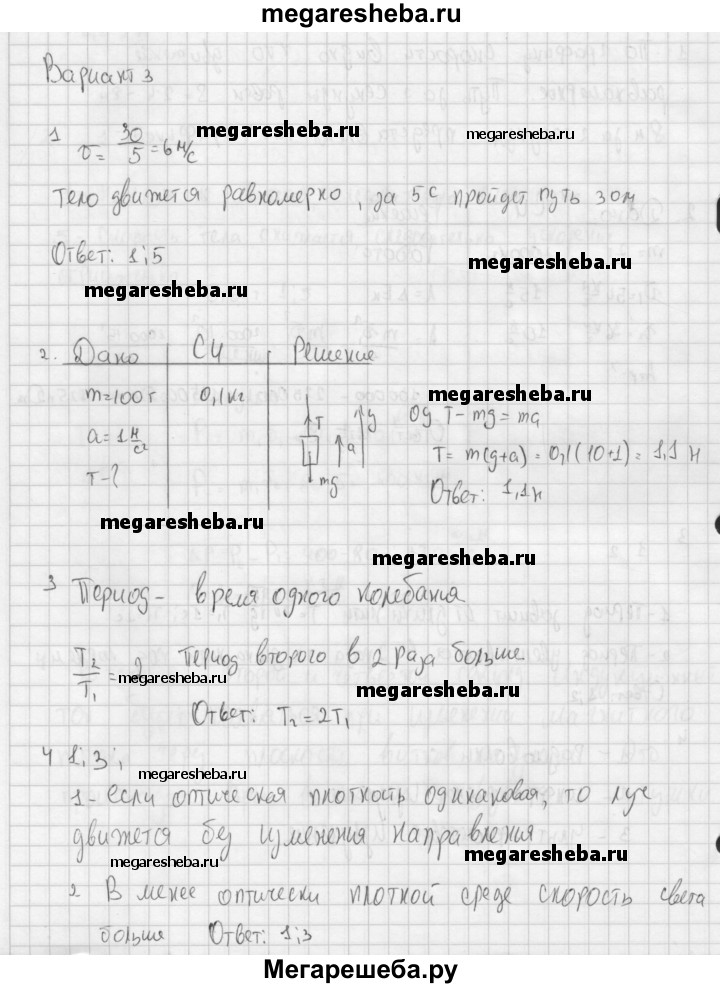 megaresheba.ru
Вариант 3
1 υ = 30/5 = 6 м/с
megaresheba.ru
megaresheba.ru
тело движется равномерно, за 5с пройдет путь 30м
Ответ: 1;5
megaresheba.ru
megaresheba.ru
2. Дано СИ Решение
m=100г 0,1кг
a=1 м/с²
T-?
T
a
y
mg
megaresheba.ru
oy T-mg=ma
T= m(g+a) = 0,1(10+1) = 1,1 н
Ответ: 1,1н
megaresheba.ru
megaresheba.ru
3 Период - время одного колебания
T₂/T₁ = 2 период второго в 2 раза больше
megaresheba.ru
megaresheba.ru
Ответ: T₂=2T₁
4 1;3;
megaresheba.ru
1-если оптическая плоткость одинаковая, то луч
движется без изменения направления
megaresheba.ru
megaresheba.ru
2 В менее оптически плоткой среде скорость света
больше Ответ: 1;3
Мегарешеба.ру